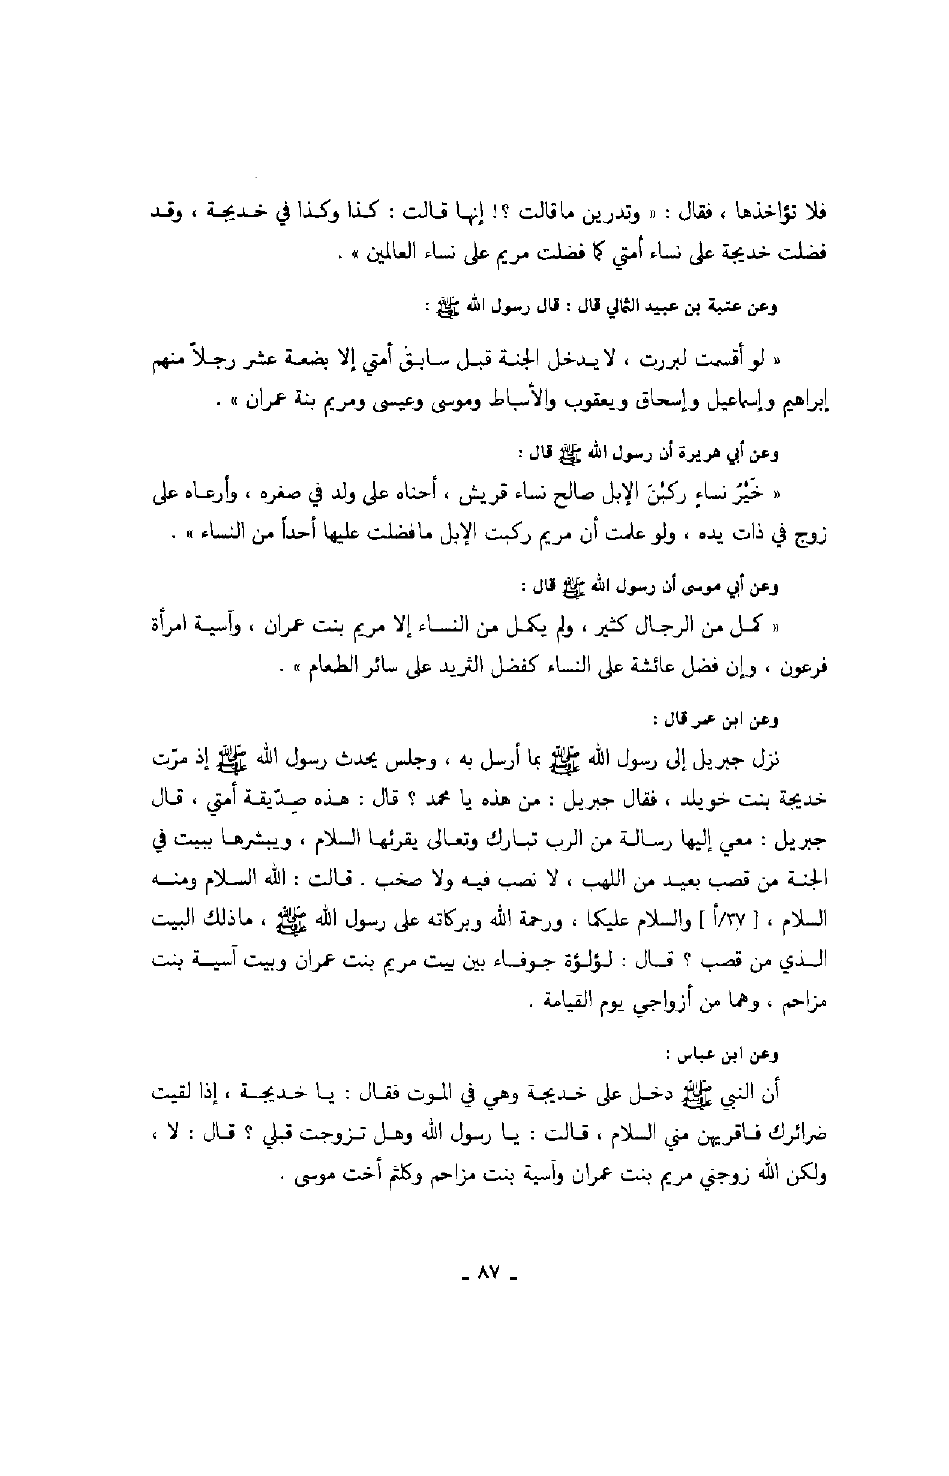 فلا تؤاخذها ، فقال : « وتدرين ماقالت ؟! إنها قالت : كذا وكذا في خديجة ، وقد
فضلت خديجة على نساء أمتي كما فضلت مريم على نساء العالمين » .
وعن عتبة بن عبيد الثمالي قال : قال رسول الله ﷺ :
« لو أقسمت لبررت ، لا يدخل الجنة قبل سابق أمتي إلا بضعة عشر رجلاً منهم
إبراهيم وإسماعيل وإسحاق ويعقوب والأسباط وموسى وعيسى ومريم بنة عمران » .
وعن أبي هريرة أن رسول الله ﷺ قال :
« خَيْرُ نساءٍ ركبْنَ الإبل صالح نساء قريش ، أحناه على ولد في صغره ، وأرعاه على
زوج في ذات يده ، ولو علمت أن مريم ركبت الإبل مافضلت عليها أحداً من النساء » .
وعن أبي موسى أن رسول الله ﷺ قال :
« كمل من الرجال كثير ، ولم يكمل من النساء إلا مريم بنت عمران ، وآسية امرأة
فرعون ، وإن فضل عائشة على النساء كفضل الثريد على سائر الطعام » .
وعن ابن عمر قال :
نزل جبريل إلى رسول الله ﷺ بما أرسل به ، وجلس يحدث رسول الله ﷺ إذ مرّت
خديجة بنت خويلد ، فقال جبريل : من هذه يا محمد ؟ قال : هذه صِدّيقة أمتي ، قال
جبريل : معي إليها رسالة من الرب تبارك وتعالى يقرئها السلام ، ويبشرها ببيت في
الجنة من قصب بعيد من اللهب ، لا نصب فيه ولا صخب . قالت : الله السلام ومنه
السلام ، [ ٣٧/أ ] والسلام عليكما ، ورحمة الله وبركاته على رسول الله ﷺ ، ماذلك البيت
الذي من قصب ؟ قال : لؤلؤة جوفاء بين بيت مريم بنت عمران وبيت آسية بنت
مزاحم ، وهما من أزواجي يوم القيامة .
وعن ابن عباس :
أن النبي ﷺ دخل على خديجة وهي في الموت فقال : يا خديجة ، إذا لقيت
ضرائرك فاقريهن مني السلام ، قالت : يا رسول الله وهل تزوجت قبلي ؟ قال : لا ،
ولكن الله زوجني مريم بنت عمران وآسية بنت مزاحم وكلثم أخت موسى .
- ٨٧ -